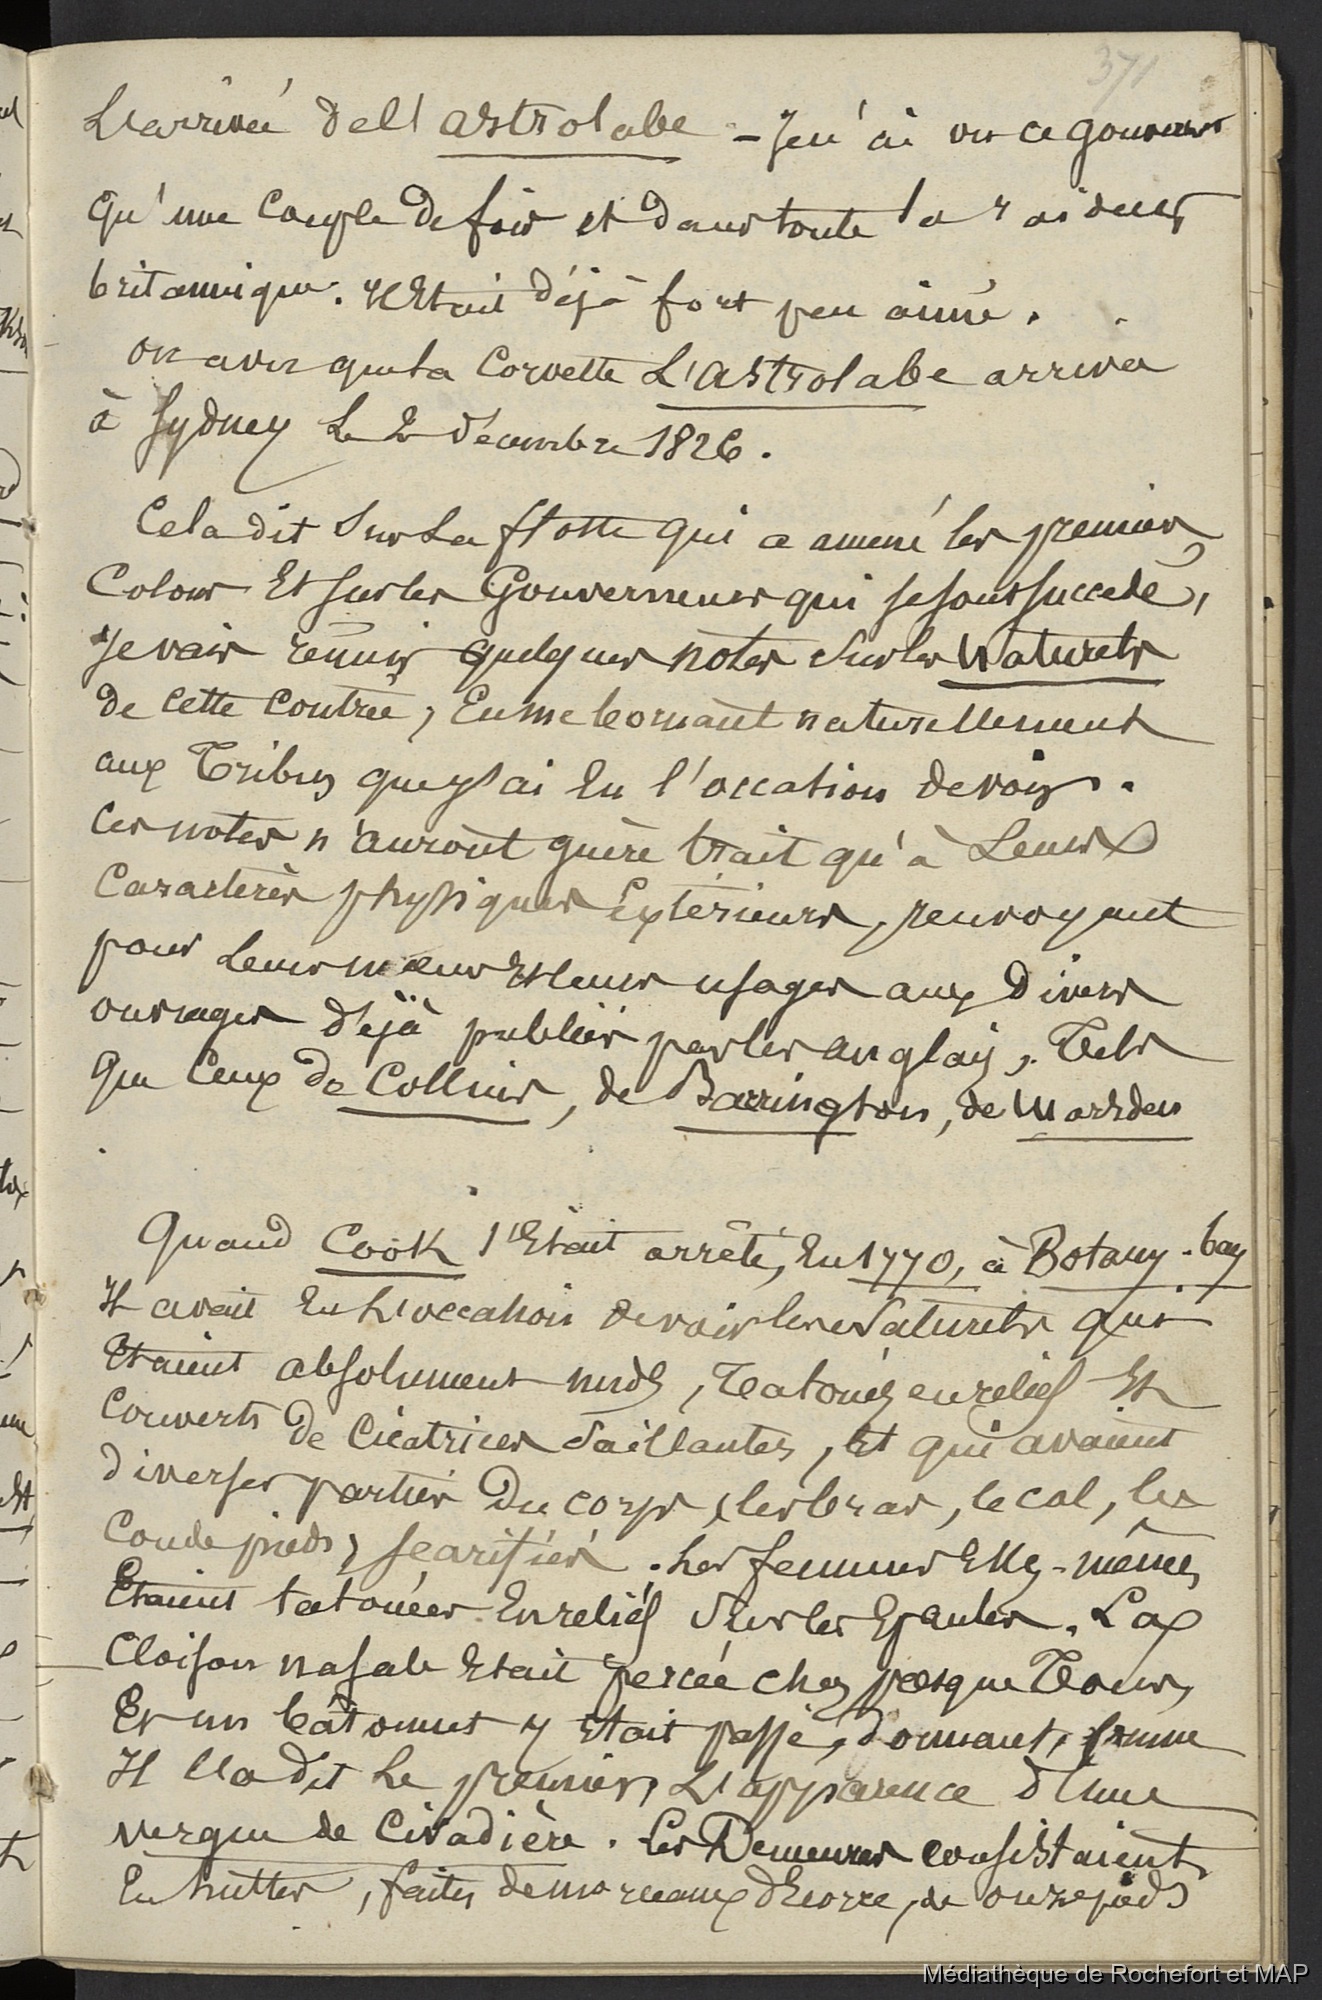 371
L'arrivée de l'astrolabe – Je n'ai vu ce gouverneur
qu'une couple de fois et dans toute la raideur
britannique. Il Etait déjà fort peu aimé.
on a vu que la Corvette L'astrolabe arriva
à Sydney Le 2 décembre 1826.
Cela dit sur La flotte qui a amené les premiers
Colons Et sur les Gouverneurs qui se sont succedé,
Je vais réunir quelques notes sur les Naturels
de cette contrée, En me bornant naturellement
aux Tribus que j'ai Eu l'occation de voir.
Ces notes n'auront guère trait qu'à Leurs
Caractères physiques Extérieurs, renvoyant
pour Leurs mœurs Et leurs usages aux divers
ouvrages déjà publiés par les anglais, Tels
que Ceux de Collins, de Barrington, de Marsden
Quand Cook s'Etait arrêté, En 1770, à Botany-bay
Il avait Eu L'occation de voir les Naturels qui
Etaient absolument nuds, Tatoués en relief Et
Couverts de Cicatrices Saillantes, Et qui avaient
diverses parties du corps, les bras, le col, les
Coude pieds, scarifiés. Les femmes Elles-mêmes
Etaient tatouées En relief Sur les Epaules. La
Cloison nasale Etait percée chez presque Tous,
Et un bâtonnet y Etait passé, donnant, comme
Il l'a dit Le premier, L'apparence d'une
vergue de Civadière. Les Demeures consistaient
En huttes, faites de morceaux d'Ecorce, de onze pieds
Médiathèque de Rochefort et MAP